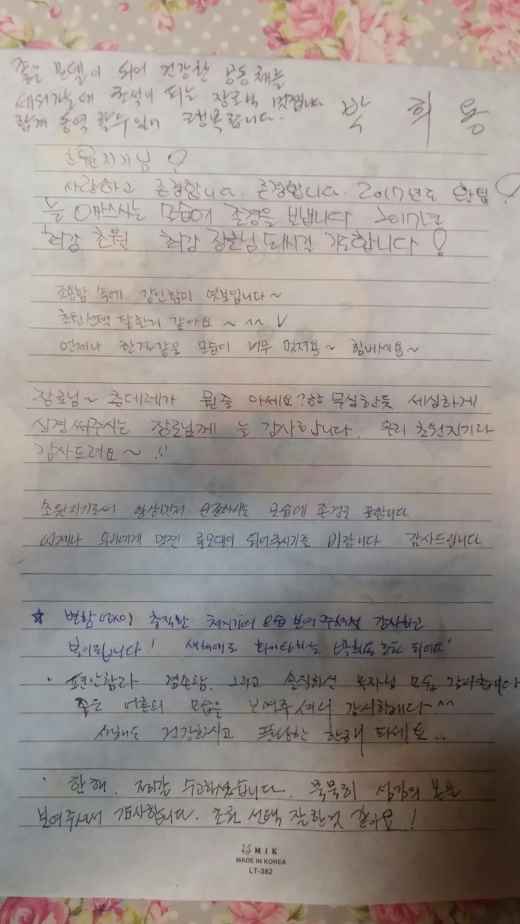 좋은 모델이 되어 건강한 공동체를
세워가는데 초석이 되는 장로님 멋집니다
함께 동역할 수 있어 행복합니다.
박 희 용
초원지기님 ♡
사랑하고 존경합니다. 존경합니다. 2017년도 한팀
늘 애쓰시는 모습에 존경을 보냅니다 2017년
최강 초원 최강 장로님 되시길 기도합니다!
조용함 속에 강인함이 엿보입니다~
초원선택 잘한거 같아요~ ^^ V
언제나 한결같은 모습이 너무 멋져요~ 힘내세요~
장로님~ 츤데레가 뭔줄 아세요? 무심한듯 세심하게
신경 써주시는 장로님께 늘 감사합니다. 우리 초원지기라
감사드려요~ !!
초원지기로서 섬기시는 모습에 존경을 표합니다
언제나 우리에게 멋진 롤모델이 되어주시기를 바랍니다 감사드립니다
☆ 변함없이 충직한 청지기의 모습 보여주셔서 감사하고
· 편안함과 겸손함, 그리고 솔직하신 목자님 모습 감사합니다
좋은 어른의 모습을 보여주셔서 감사해요 ^^
새해에도 건강하시고 풍성한 한해 되세요..
· 한해, 수고하셨습니다. 묵묵히 섬김의 본을
보여주셔서 감사합니다. 초원 선택 잘한것 같아요!
MIK
MADE IN KOREA
LT-382